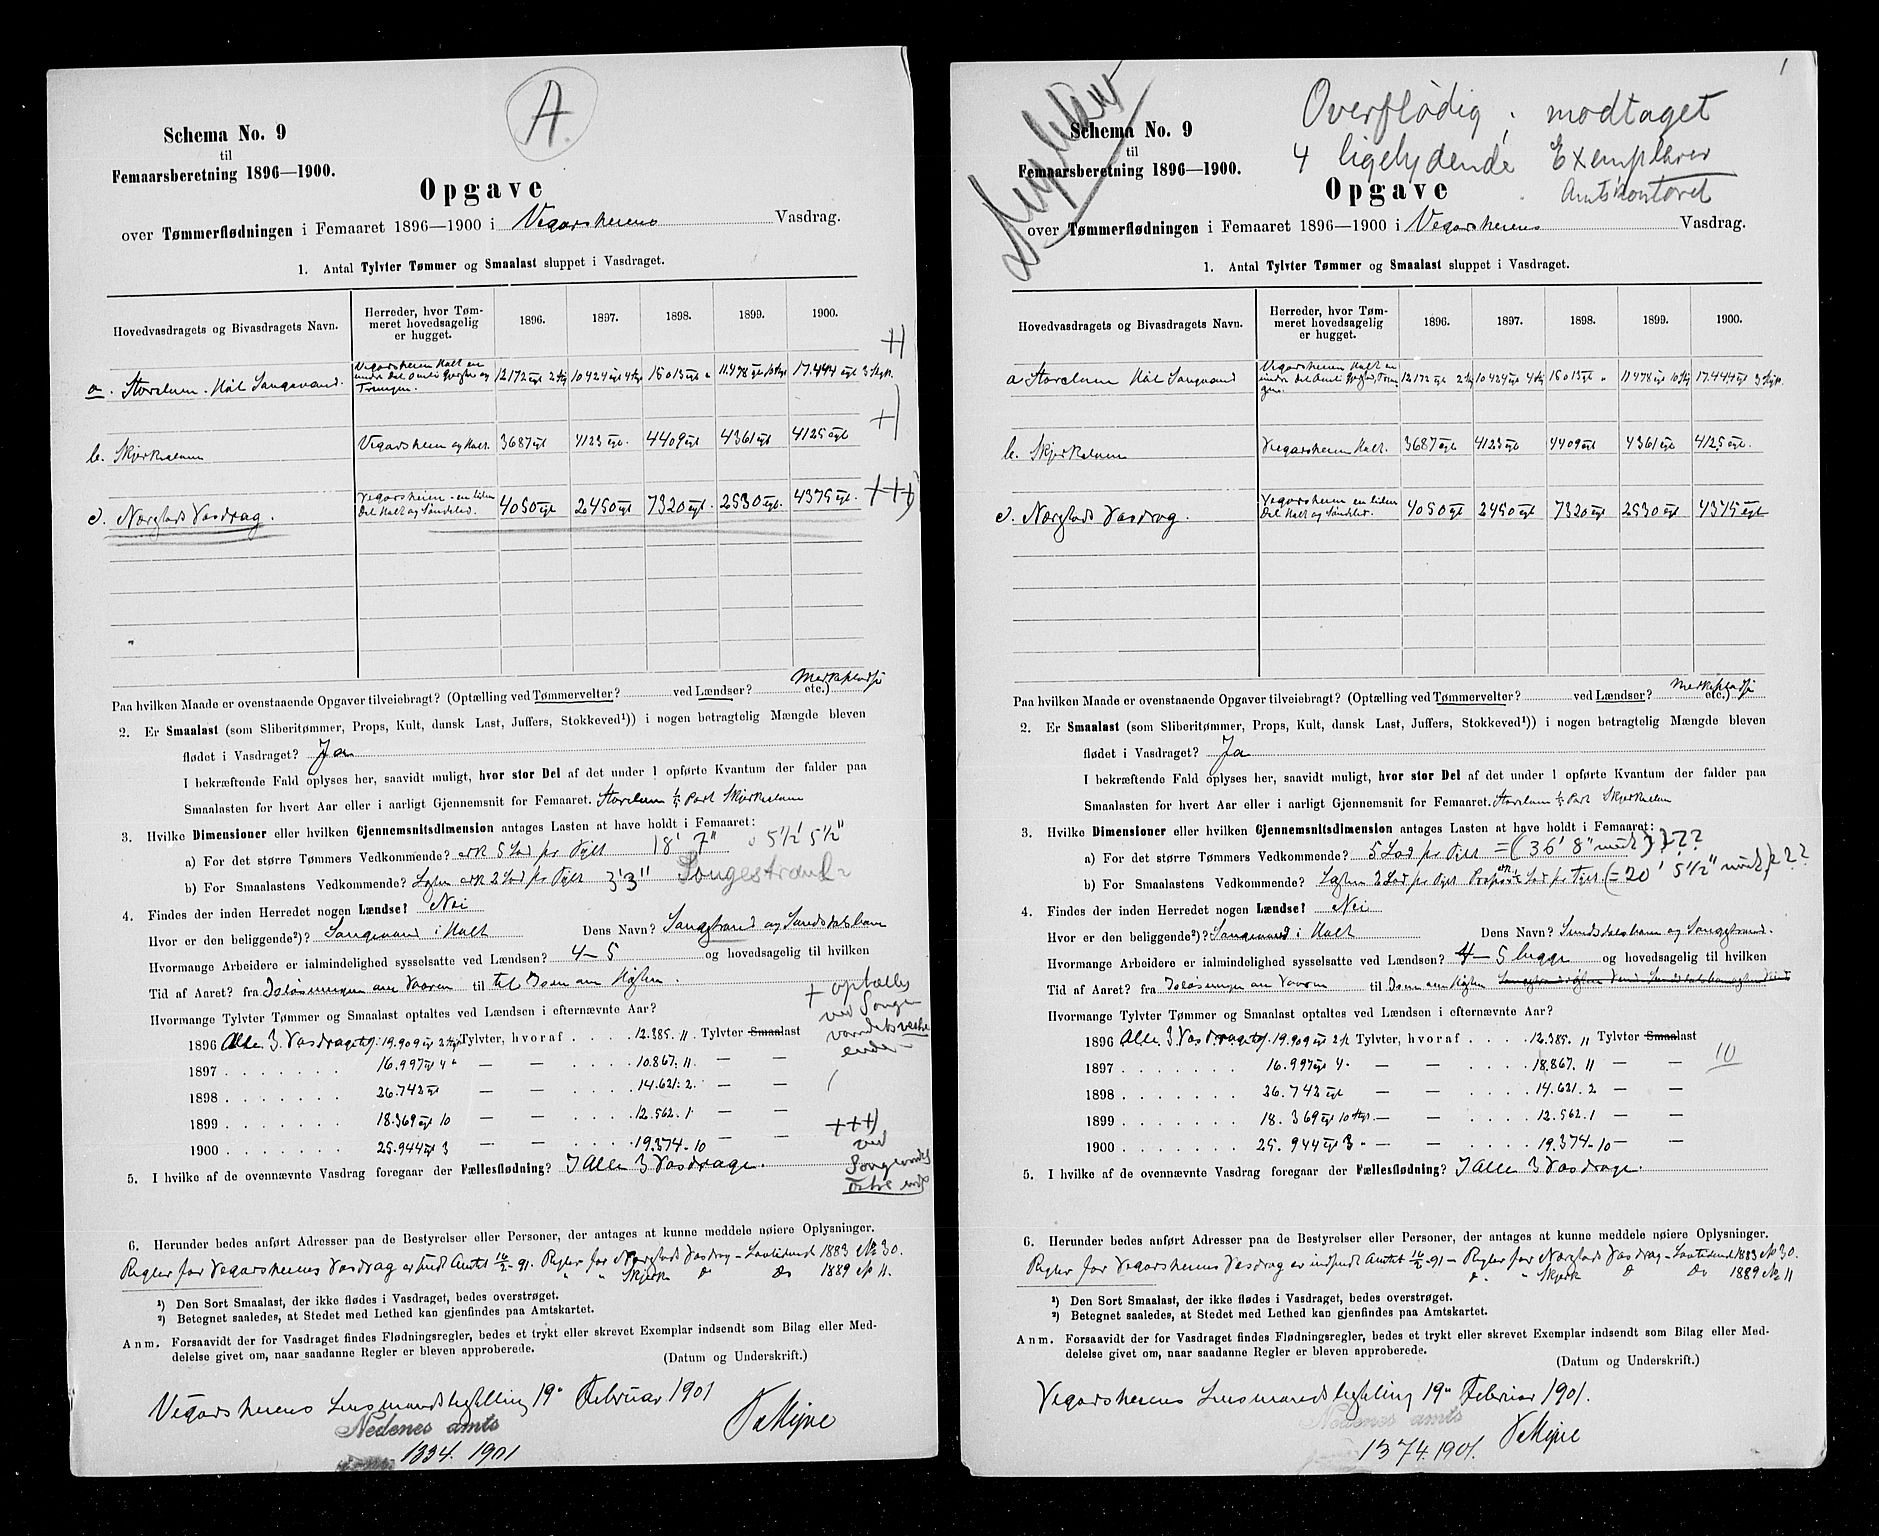 A.
Schema No. 9
til
Femaarsberetning 1896—1900.
Opgave
over Tømmerflødningen i Femaaret 1896—1900 i Vegarsheiens Vasdrag.
1. Antal Tylvter Tømmer og Smaalast sluppet i Vasdraget.
Hovedvasdragets og Bivasdragets Navn. Herreder, hvor Tømmeret hovedsagelig er hugget. 1896. 1897. 1898. 1899. 1900.
a. Storelven Songevand. 12172 10424 15013 11478 17.444
b. Skjerkelven Vegarsheien og Holt. 3687 4123 4409 4361 4125
c. Nævestads Vasdrag. Vegarsheien en liden Del Holt og Søndeled. 4050 2450 7320 2530 4375 +++)
Paa hvilken Maade er ovenstaaende Opgaver tilveiebragt? (Optælling ved Tømmervelter? ved Lændser? etc.)
2. Er Smaalast (som Sliberitømmer, Props, Kult, dansk Last, Juffers, Stokkeved¹)) i nogen betragtelig Mængde bleven
flødet i Vasdraget? Ja
I bekræftende Fald oplyses her, saavidt muligt, hvor stor Del af det under 1 opførte Kvantum der falder paa
Smaalasten for hvert Aar eller i aarligt Gjennemsnit for Femaaret. Storelven Part Skjerkelven
3. Hvilke Dimensioner eller hvilken Gjennemsnitsdimension antages Lasten at have holdt i Femaaret:
a) For det større Tømmers Vedkommende? 5 Lod pr Tylt 18' 7" 5½' 5½"
b) For Smaalastens Vedkommende? 2 Lod pr Tylt 3'3" Songestrand
4. Findes der inden Herredet nogen Lændse? Nei
Hvor er den beliggende²)? Songevand i Holt Dens Navn? Songestrand og Sundsdalshavn
Hvormange Arbeidere er ialmindelighed sysselsatte ved Lændsen? 4–5 og hovedsagelig til hvilken
Tid af Aaret? fra Isløsningen om Vaaren til til Isen om Høsten.
Hvormange Tylvter Tømmer og Smaalast optaltes ved Lændsen i efternævnte Aar?
1896 Alle 3 Vasdrag 19.909 Tylvter, hvoraf . . . . 12.385. 11 Tylvter Smaalast
1897 . . . . . . . 16.997 4 — — . . . . 10.867. 11 — —
1898 . . . . . . . 26.742 — — . . . . 14.621. 2 — —
1899 . . . . . . . 18.369 10 — — . . . . 12.562. 1 — —
1900 . . . . . . . 25.944 3 — — . . . . 19.374. 10 — —
+ optælles
ved Songe
vandets vestre
ende
+++)
ved
Songevandets
østre ende
5. I hvilke af de ovennævnte Vasdrag foregaar der Fællesflødning? I Alle 3 Vasdrage.
6. Herunder bedes anført Adresser paa de Bestyrelser eller Personer, der antages at kunne meddele nøiere Oplysninger.
Regler for Vegarsheiens Vasdrag er indt Amtet 16/2 - 91. Regler for Nævestads Vasdrag – Lovtidend 1883 No 30.
" " Skjerk do Do 1889 No 11.
¹) Den Sort Smaalast, der ikke flødes i Vasdraget, bedes overstrøget.
²) Betegnet saaledes, at Stedet med Lethed kan gjenfindes paa Amtskartet.
Anm. Forsaavidt der for Vasdraget findes Flødningsregler, bedes et trykt eller skrevet Exemplar indsendt som Bilag eller Med-
delelse givet om, naar saadanne Regler er bleven approberede.
(Datum og Underskrift.)
Vegarsheiens Lensmandsbestilling 19de Februar 1901
Nedenes amts
1334. 1901
1
Overflødig; modtaget
4 ligelydende Exemplarer
Amtskontoret
Schema No. 9
til
Femaarsberetning 1896—1900.
Opgave
over Tømmerflødningen i Femaaret 1896—1900 i Vegarsheiens Vasdrag.
1. Antal Tylvter Tømmer og Smaalast sluppet i Vasdraget.
Hovedvasdragets og Bivasdragets Navn. Herreder, hvor Tømmeret hovedsagelig er hugget. 1896. 1897. 1898. 1899. 1900.
a Storelven Songevand 12172 10424 15013 11478 17.444
b. Skjerkelven Vegarsheien Holt. 3687 4123 4409 4361 4125
c. Nævestads Vasdrag. Vegarsheien en liden Del Holt og Søndeled. 4050 2450 7320 2530 4375
Paa hvilken Maade er ovenstaaende Opgaver tilveiebragt? (Optælling ved Tømmervelter? ved Lændser? etc.)
2. Er Smaalast (som Sliberitømmer, Props, Kult, dansk Last, Juffers, Stokkeved¹)) i nogen betragtelig Mængde bleven
flødet i Vasdraget? Ja
I bekræftende Fald oplyses her, saavidt muligt, hvor stor Del af det under 1 opførte Kvantum der falder paa
Smaalasten for hvert Aar eller i aarligt Gjennemsnit for Femaaret. Storelven Part Skjerkelven
3. Hvilke Dimensioner eller hvilken Gjennemsnitsdimension antages Lasten at have holdt i Femaaret:
a) For det større Tømmers Vedkommende? 5 Lod pr Tylt = (36' 8" midt) ???
b) For Smaalastens Vedkommende? 2 Lod pr Tylt Props Lod pr Tylt (= 20' 5½" midt) ???
4. Findes der inden Herredet nogen Lændse? Nei
Hvor er den beliggende²)? Songevand i Holt Dens Navn? Sundsdalshavn og Songestrand.
Hvormange Arbeidere er ialmindelighed sysselsatte ved Lændsen? 4–5 begge og hovedsagelig til hvilken
Tid af Aaret? fra Isløsningen om Vaaren til Isen om Høsten
Hvormange Tylvter Tømmer og Smaalast optaltes ved Lændsen i efternævnte Aar?
1896 Alle 3 Vasdrag 19.909 Tylvter, hvoraf . . . . 12.385. 11 Tylvter Smaalast
1897 . . . . . . . 16.997 4 — — . . . . 10.867. 11 — — 10
1898 . . . . . . . 26.742 — — . . . . 14.621. 2 — —
1899 . . . . . . . 18.369 10 — — . . . . 12.562. 1 — —
1900 . . . . . . . 25.944 3 — — . . . . 19.374. 10 — —
5. I hvilke af de ovennævnte Vasdrag foregaar der Fællesflødning? I Alle 3 Vasdrage.
6. Herunder bedes anført Adresser paa de Bestyrelser eller Personer, der antages at kunne meddele nøiere Oplysninger.
Regler for Vegarsheiens Vasdrag er indsendt Amtet 16/2 - 91 – Regler for Nævestads Vasdrag – Lovtidend 1883 No 30.
" Skjerk do Do 1889 No 11
¹) Den Sort Smaalast, der ikke flødes i Vasdraget, bedes overstrøget.
²) Betegnet saaledes, at Stedet med Lethed kan gjenfindes paa Amtskartet.
Anm. Forsaavidt der for Vasdraget findes Flødningsregler, bedes et trykt eller skrevet Exemplar indsendt som Bilag eller Med-
delelse givet om, naar saadanne Regler er bleven approberede.
(Datum og Underskrift.)
Vegarsheiens Lensmandsbestilling 19de Februar 1901.
Nedenes amts
1374. 1901.